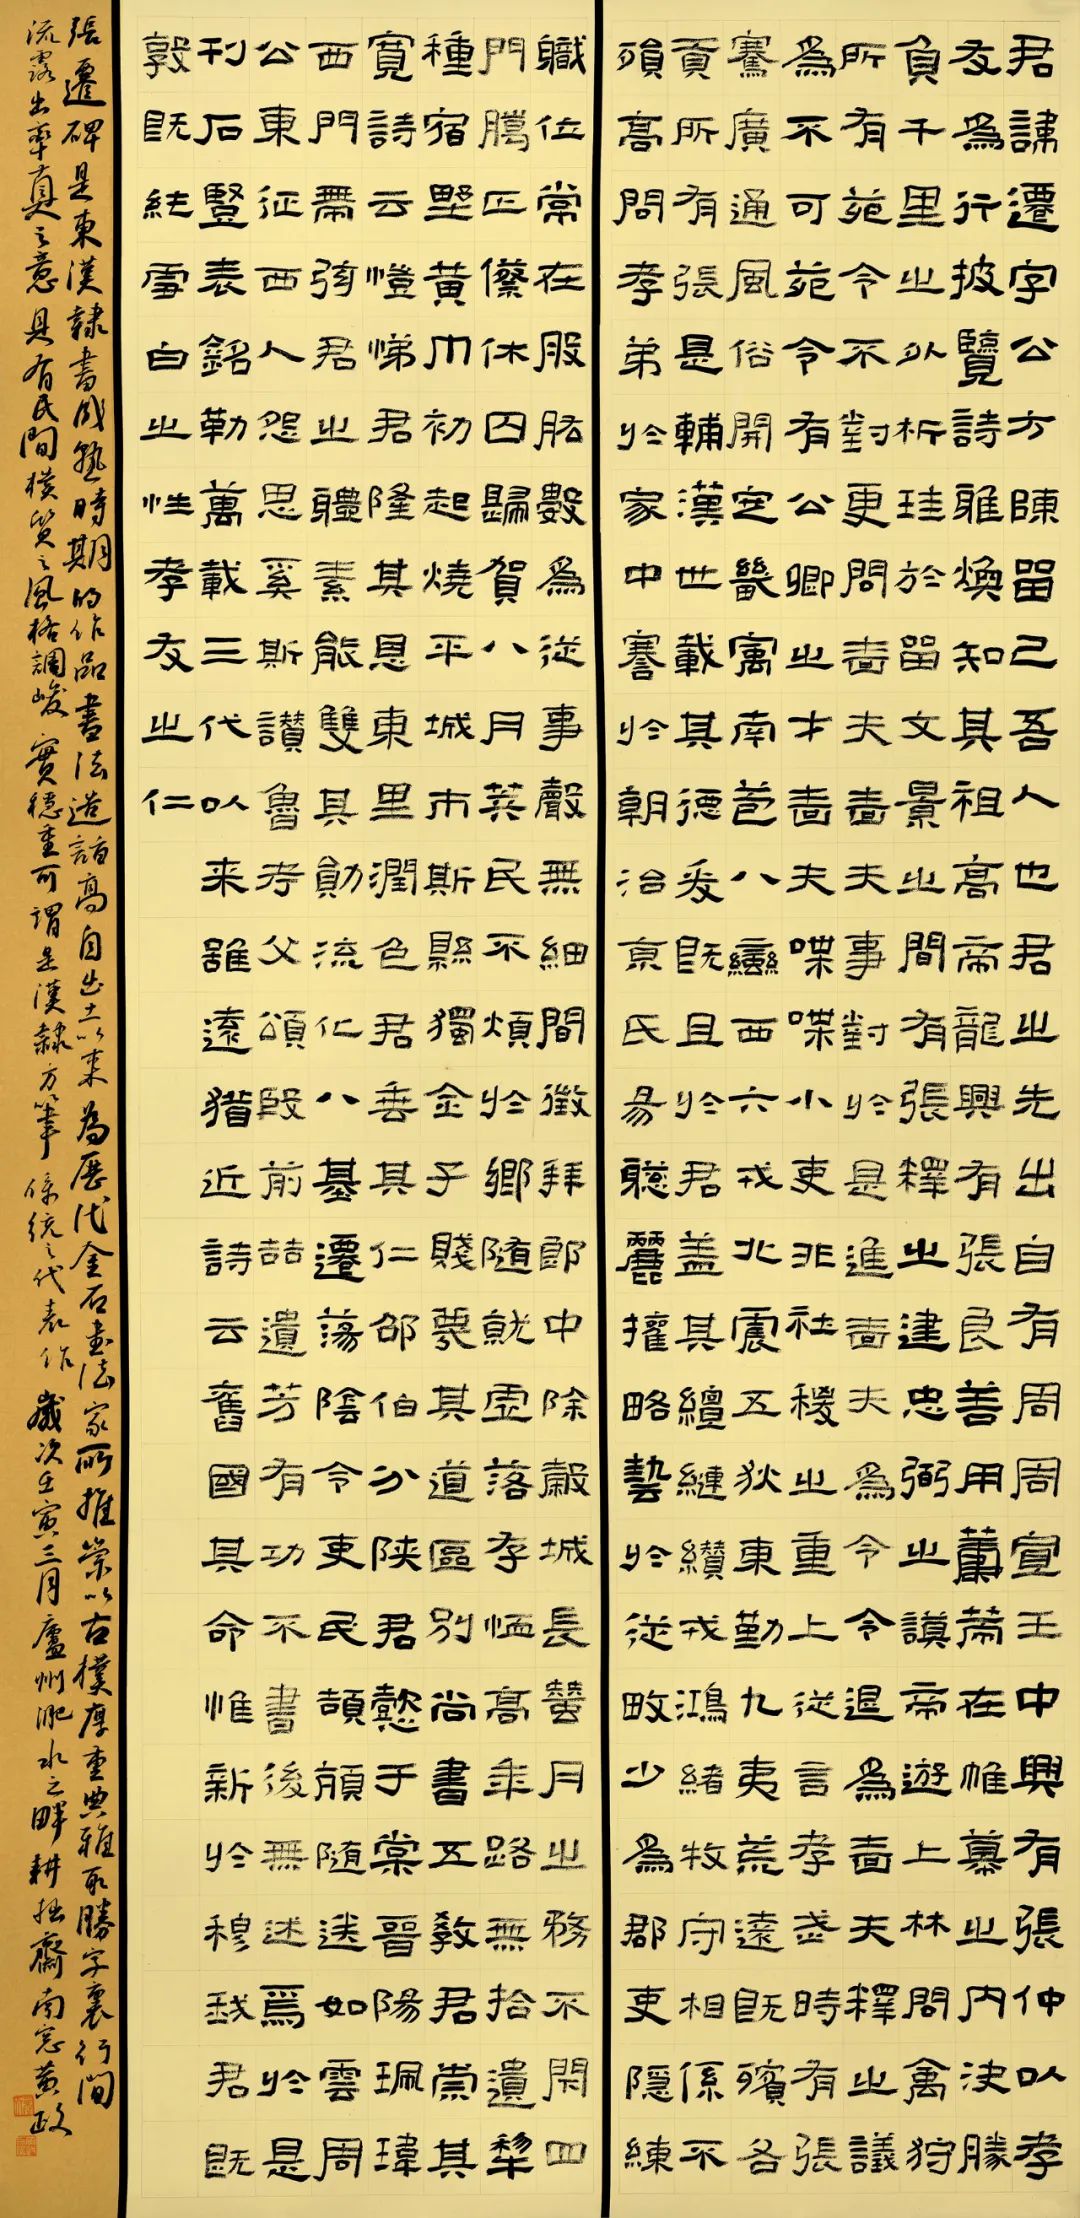 君諱遷字公方陳留己吾人也君之先出自有周周宣王中興有張仲以孝
友為行披覽詩雅煥知其祖高帝龍興有張良善用籌策在帷幕之內決勝
負千里之外析珪於留文景之間有張釋之建忠弼之謨帝遊上林問禽狩
所有苑令不對更問嗇夫嗇夫事對於是進嗇夫為令令退為嗇夫釋之議
為不可苑令有公卿之才嗇夫喋喋小吏非社稷之重上從言孝武時有張
騫廣通風俗開定畿寓南苞八蠻西六戎北震五狄東勤九夷荒遠既殯各
貢所有張是輔漢世載其德爰既且於君蓋其纏縺纘戎鴻緒牧守相係不
殞高問孝弟於家中謇於朝治京氏易聰麗權略藝於從畋少為郡吏隱練
職位常在股肱數為從事聲無細間徵拜郎中除穀城長蠶月之務不閑四
門騰正僚休囚歸賀八月筭民不煩於鄉隨就虛落存恤高年路無拾遺犁
種宿野黃巾初起燒平城市斯縣獨全子賤蔑其道區別尚書五教君崇其
寬詩云愷悌君隆其恩東里潤色君垂其仁邵伯分陝君懿于棠晉陽珮瑋
西門帶弦君之體素能雙其勛流化八基遷蕩陰令吏民頡頏隨送如雲周
公東征西人怨思奚斯讚魯考父頌殷前喆遺芳有功不書後無述焉於是
刊石豎表銘勒萬載三代以來雖遠猶近詩云舊國其命惟新於穆我君既
敦既純雪白之性孝友之仁
張遷碑是東漢隸書成熟時期的作品書法造詣高自出土以來為歷代金石書法家所推崇以古樸厚重典雅取勝字裏行間
流露出率真之意具有民間樸質之風格調峻實穩重可謂是漢隸方筆係統之代表作歲次壬寅三月廬州淝水之畔耕拙齋南窗黃政